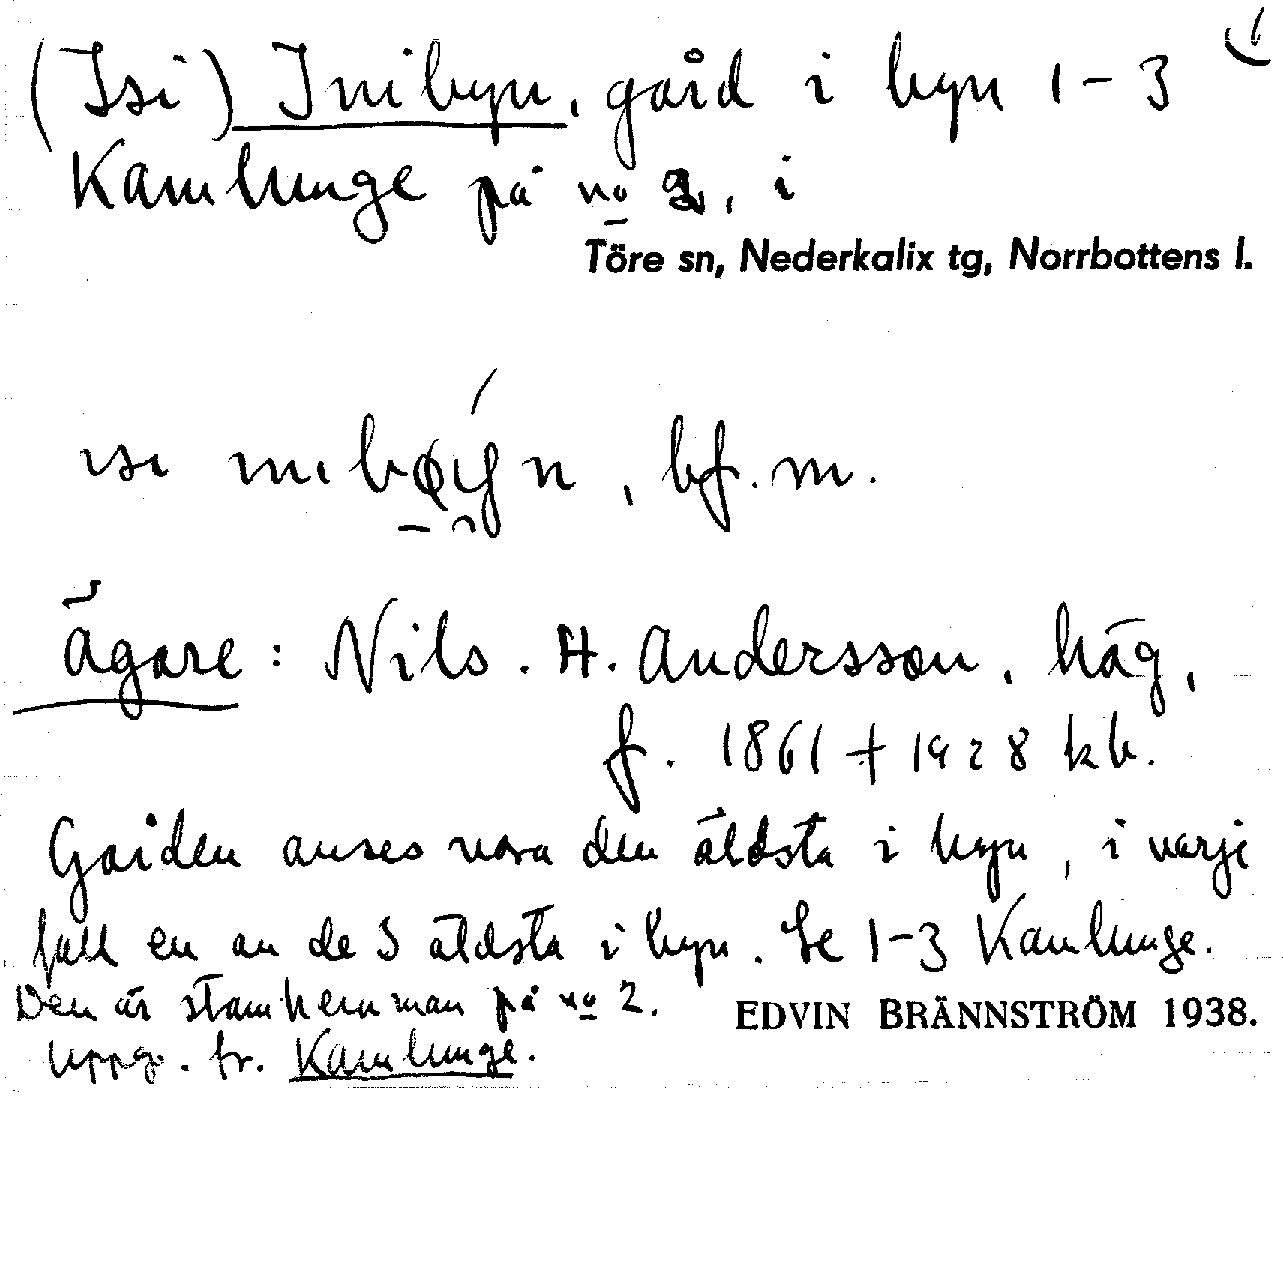 (Isi) Inibyn, gård i byn 1-3
Kamlunge på no 2, i
Töre sn, Nederkalix tg, Norrbottens l.
ısı bf. m.
Ägare: Nils. H. Andersson, häg,
f. 1861 † 1928 kb.
Gården anses vara den äldsta i byn, i varje
fall en av de 3 äldsta i byn. Se 1-3 Kamlunge.
Den är stamhemman på no 2.
EDVIN BRÄNNSTRÖM 1938.
Uppg. fr. Kamlunge.